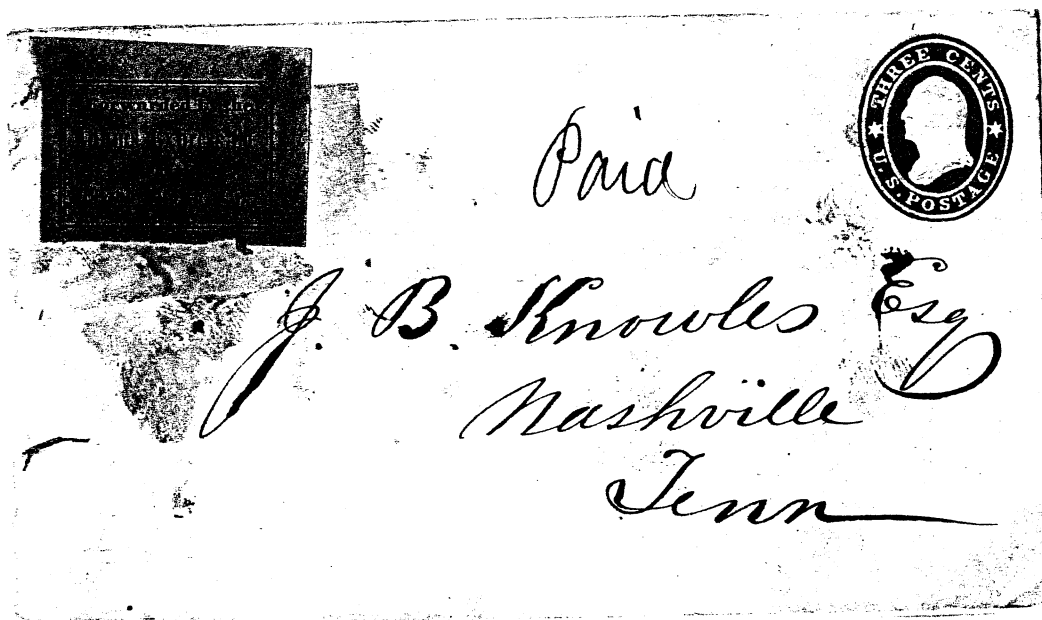 THREE CENTS
U.S. POSTAGE
Paid
J. B. Knowles Esq
Nashville
Tenn